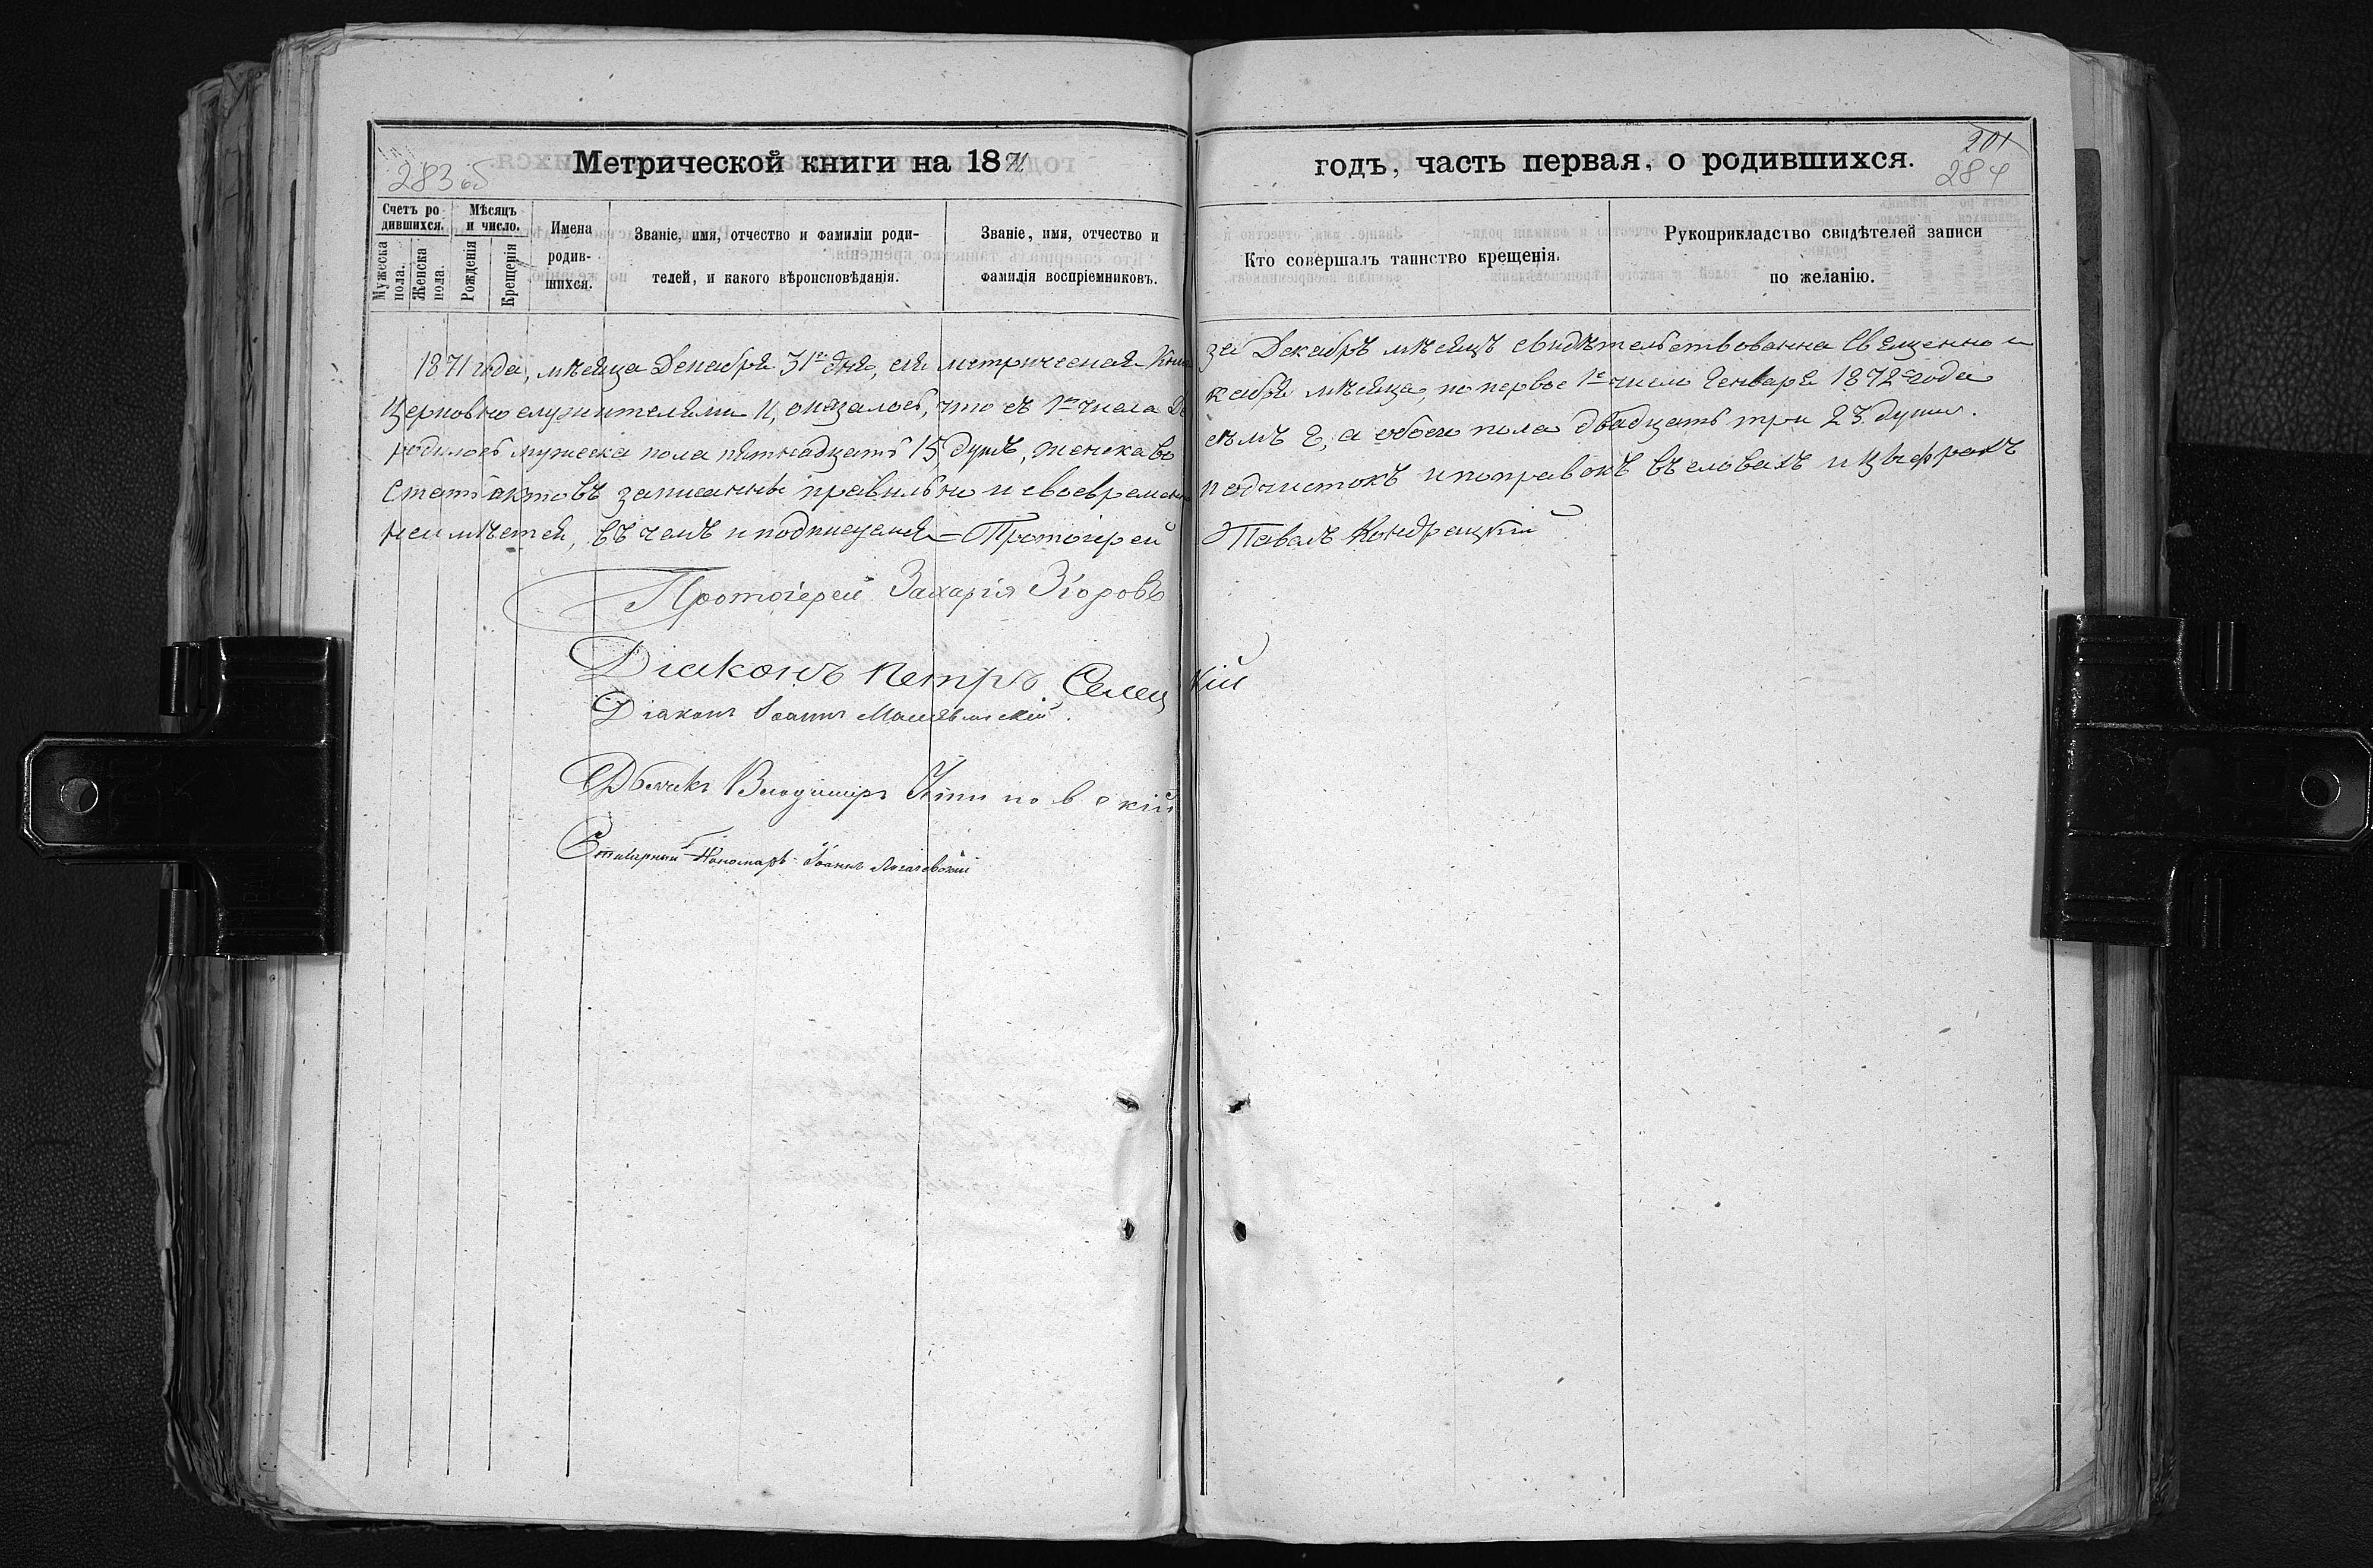 283 об
Метрической книги на 1871
годъ, часть первая, о родившихся.
201
284
Счетъ родившихся.
Мужеска пола.
Женска пола.
Мѣсяцъ и число.
Рожденія
Крещенія
Имена родившихся.
Званіе, имя, отчество и фамиліи родителей, и какого вѣроисповѣданія.
Званіе, имя, отчество и фамилія воспріемниковъ.
Кто совершалъ таинство крещенія.
Рукоприкладство свидѣтелей записи по желанію.
1871 года, мѣсяца Декабря 31го дня, сія метрическая Книга за Декабрь мѣсяцъ свидѣтельствованна Священно и
Церковно служителями и, оказалось, что съ 1го числа Декабря мѣсяца, по первое 1е число Генваря 1872 года
родилось мужеска пола пятнадцать 15 душъ, женска во семъ 8, а обоего пола двадцать три 23 души.
Статьи актовъ записанны правильно и своевременно подчистокъ и поправокъ въ словахъ и цыфрахъ
не имѣется, въ чемъ и подписуемся – Протоіерей Павелъ Кондрацкій
Протоіерей Захарія Егоровъ
Діаконъ Петръ Селецкій
Діаконъ Іоаннъ
Дьячекъ Владимиръ
Стихарный Пономарь Іоаннъ Логачевскій